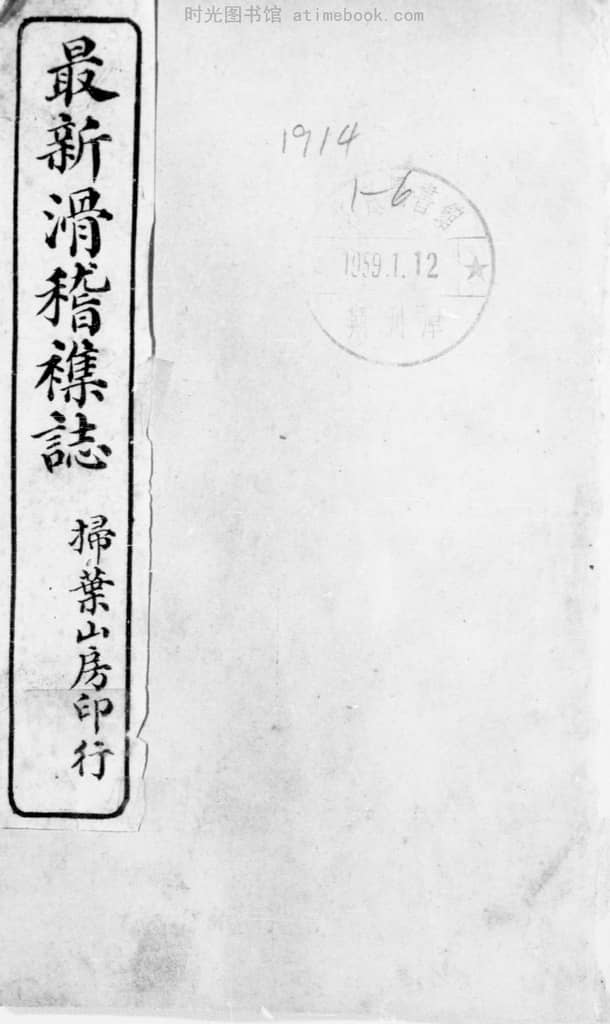 时光图书馆 atimebook.com
最新滑稽襍誌
掃葉山房印行
1914
1-6
書館
1959.1.12